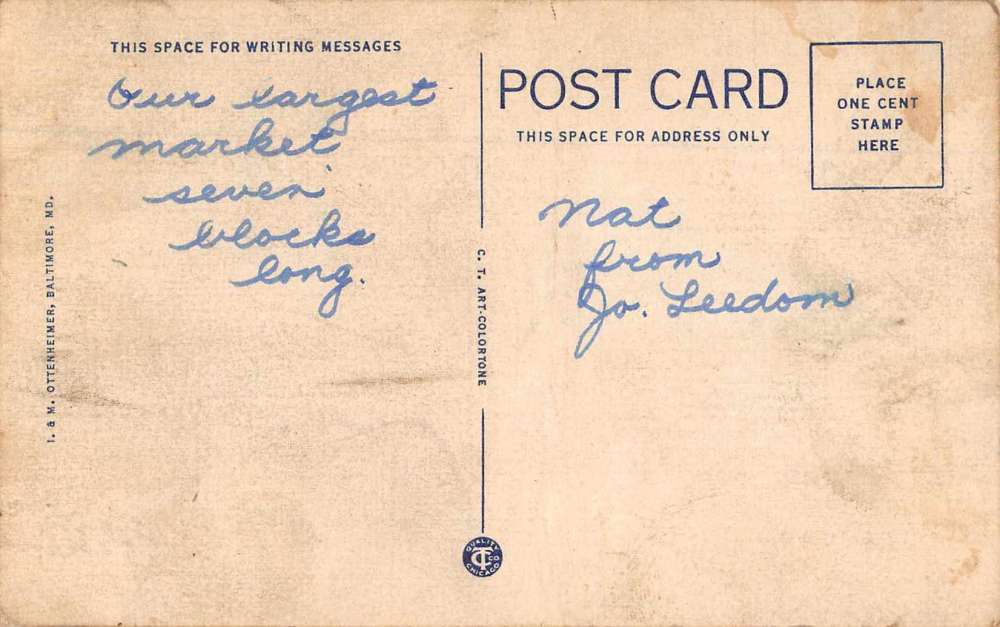 THIS SPACE FOR WRITING MESSAGES
Our largest
market,
seven
blocks
long.
I. & M. OTTENHEIMER, BALTIMORE, MD.
C. T. ART-COLORTONE
POST CARD
THIS SPACE FOR ADDRESS ONLY
PLACE
ONE CENT
STAMP
HERE
Nat
from
Jo. Leedom
QUALITY
CT CO
CHICAGO